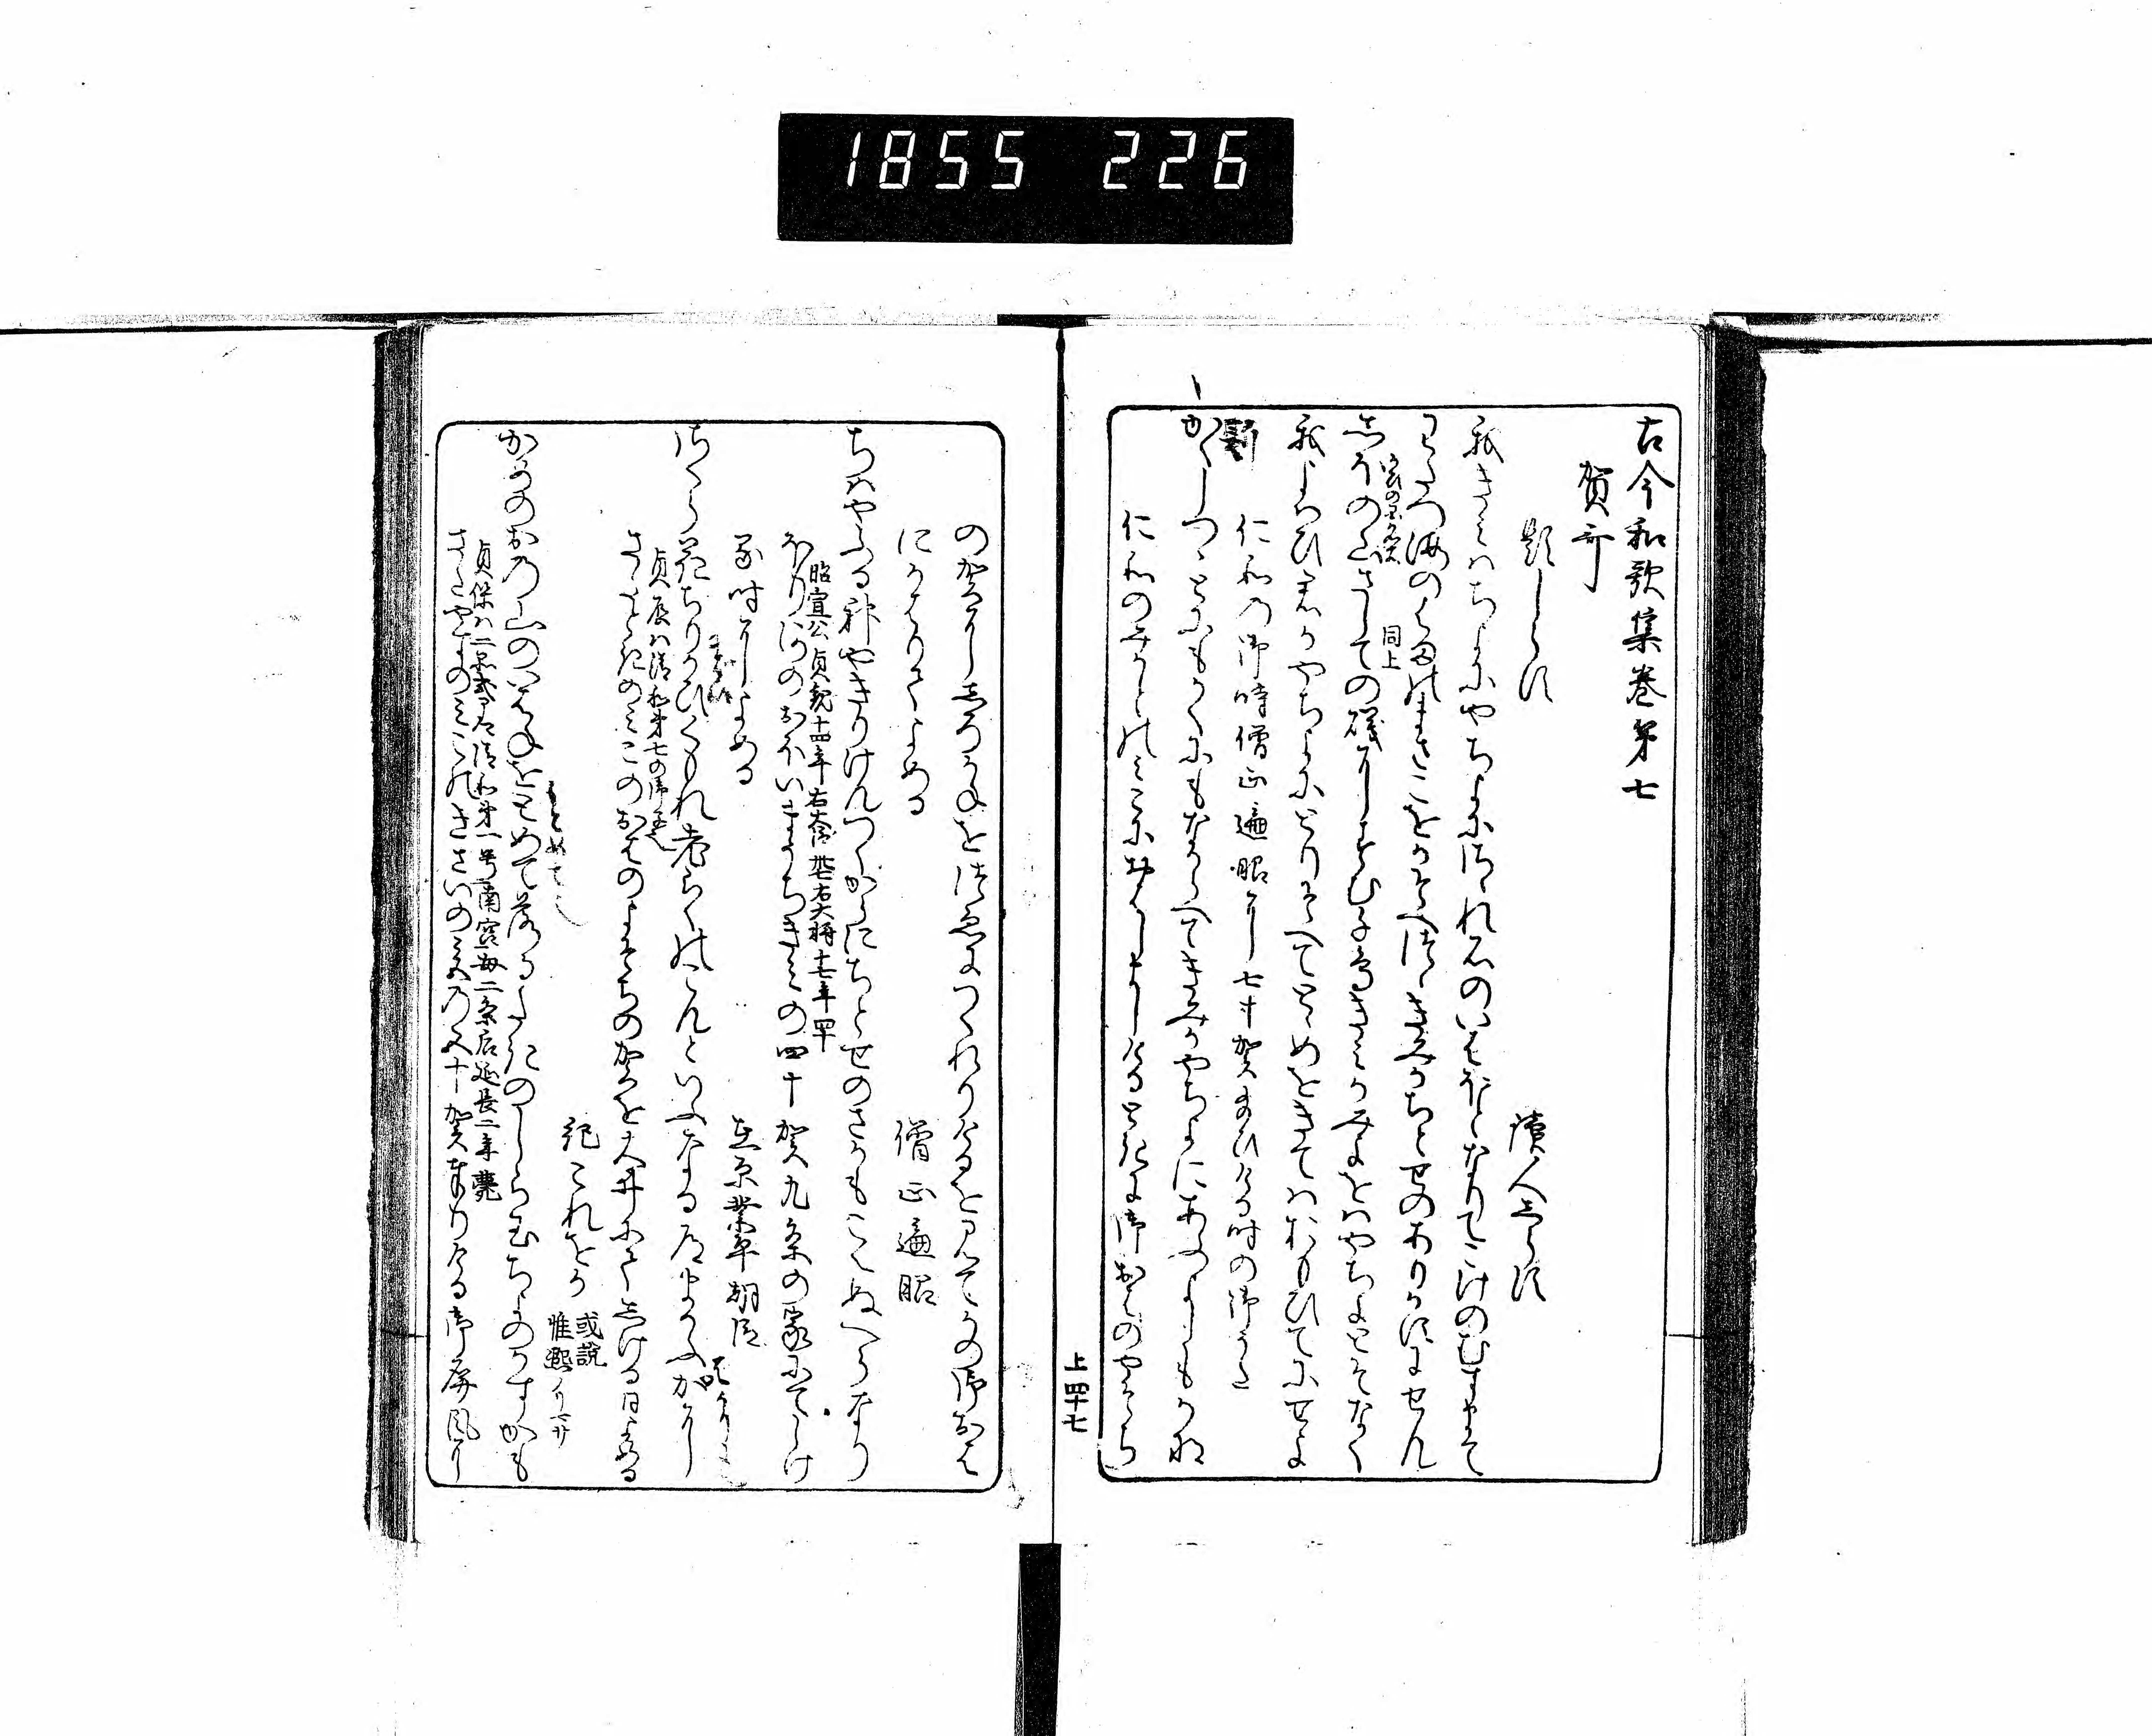 1855 226
古今和歌集巻第七
賀哥
題しらす
讀人しらす
我きみはちよにやちよにさゝれ石のいはほとなりてこけのむすまて
わたつ海のはまのまさこをかそへつゝきみかちとせのありかすにせん
しほの山さしての磯にすむ千鳥きみかみよをはやちよとそなく
同上
我よはひ君かやちよにとりそへてとゝめをきてはおもひてにせよ
仁和の御時僧正遍昭に七十賀たまひける時の御うた
かくしつゝとにもかくにもなからへてきみかやちよにあふよしもかな
仁和のみかとのみこにおはしましける時に御おはのやそち
上四十七
の賀にしろかねをつゑにつくれりけるを見てかの御おは
にかはりてよめる
僧正遍昭
ちはやふる神やきりけんつくからにちとせのさかもこえぬへらなり
昭宣公貞観十四年右大臣
ほりかはのおほいまうちきみの四十賀九条の家にてしけ
る時によめる
在原業平朝臣
さくら花ちりかひくもれ老らくのこんといふなる道まかふかに
貞辰ハ清和第七の
さたときのみこのおはのよそちの賀を大井にてしける日よめる
紀これをか
或説
惟熙
かめのおの山のいはねをとめて落るたきのしら玉ちよのかすかも
貞保ハ二品式了卿清和第一号南宮母二条后延長二年薨
さたやすのみこのきさいの宮の五十賀奉りける御屏風に